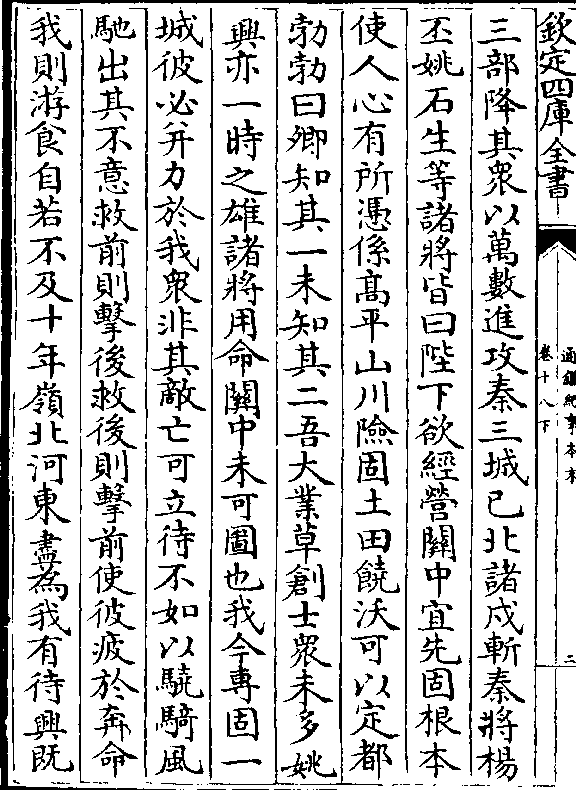 欽定四庫全書
通鑑紀事本末
卷十八下
二
三部降其衆以萬數進攻秦三城已北諸戍斬秦將楊
丕姚石生等諸將皆曰陛下欲經營關中宜先固根本
使人心有所憑係高平山川險固土田饒沃可以定都
勃勃曰卿知其一未知其二吾大業草創士衆未多姚
興亦一時之雄諸將用命關中未可圖也我今專固一
城彼必并力於我衆非其敵亡可立待不如以驍騎風
馳出其不意救前則擊後救後則擊前使彼疲於奔命
我則游食自若不及十年嶺北河東盡為我有待興既